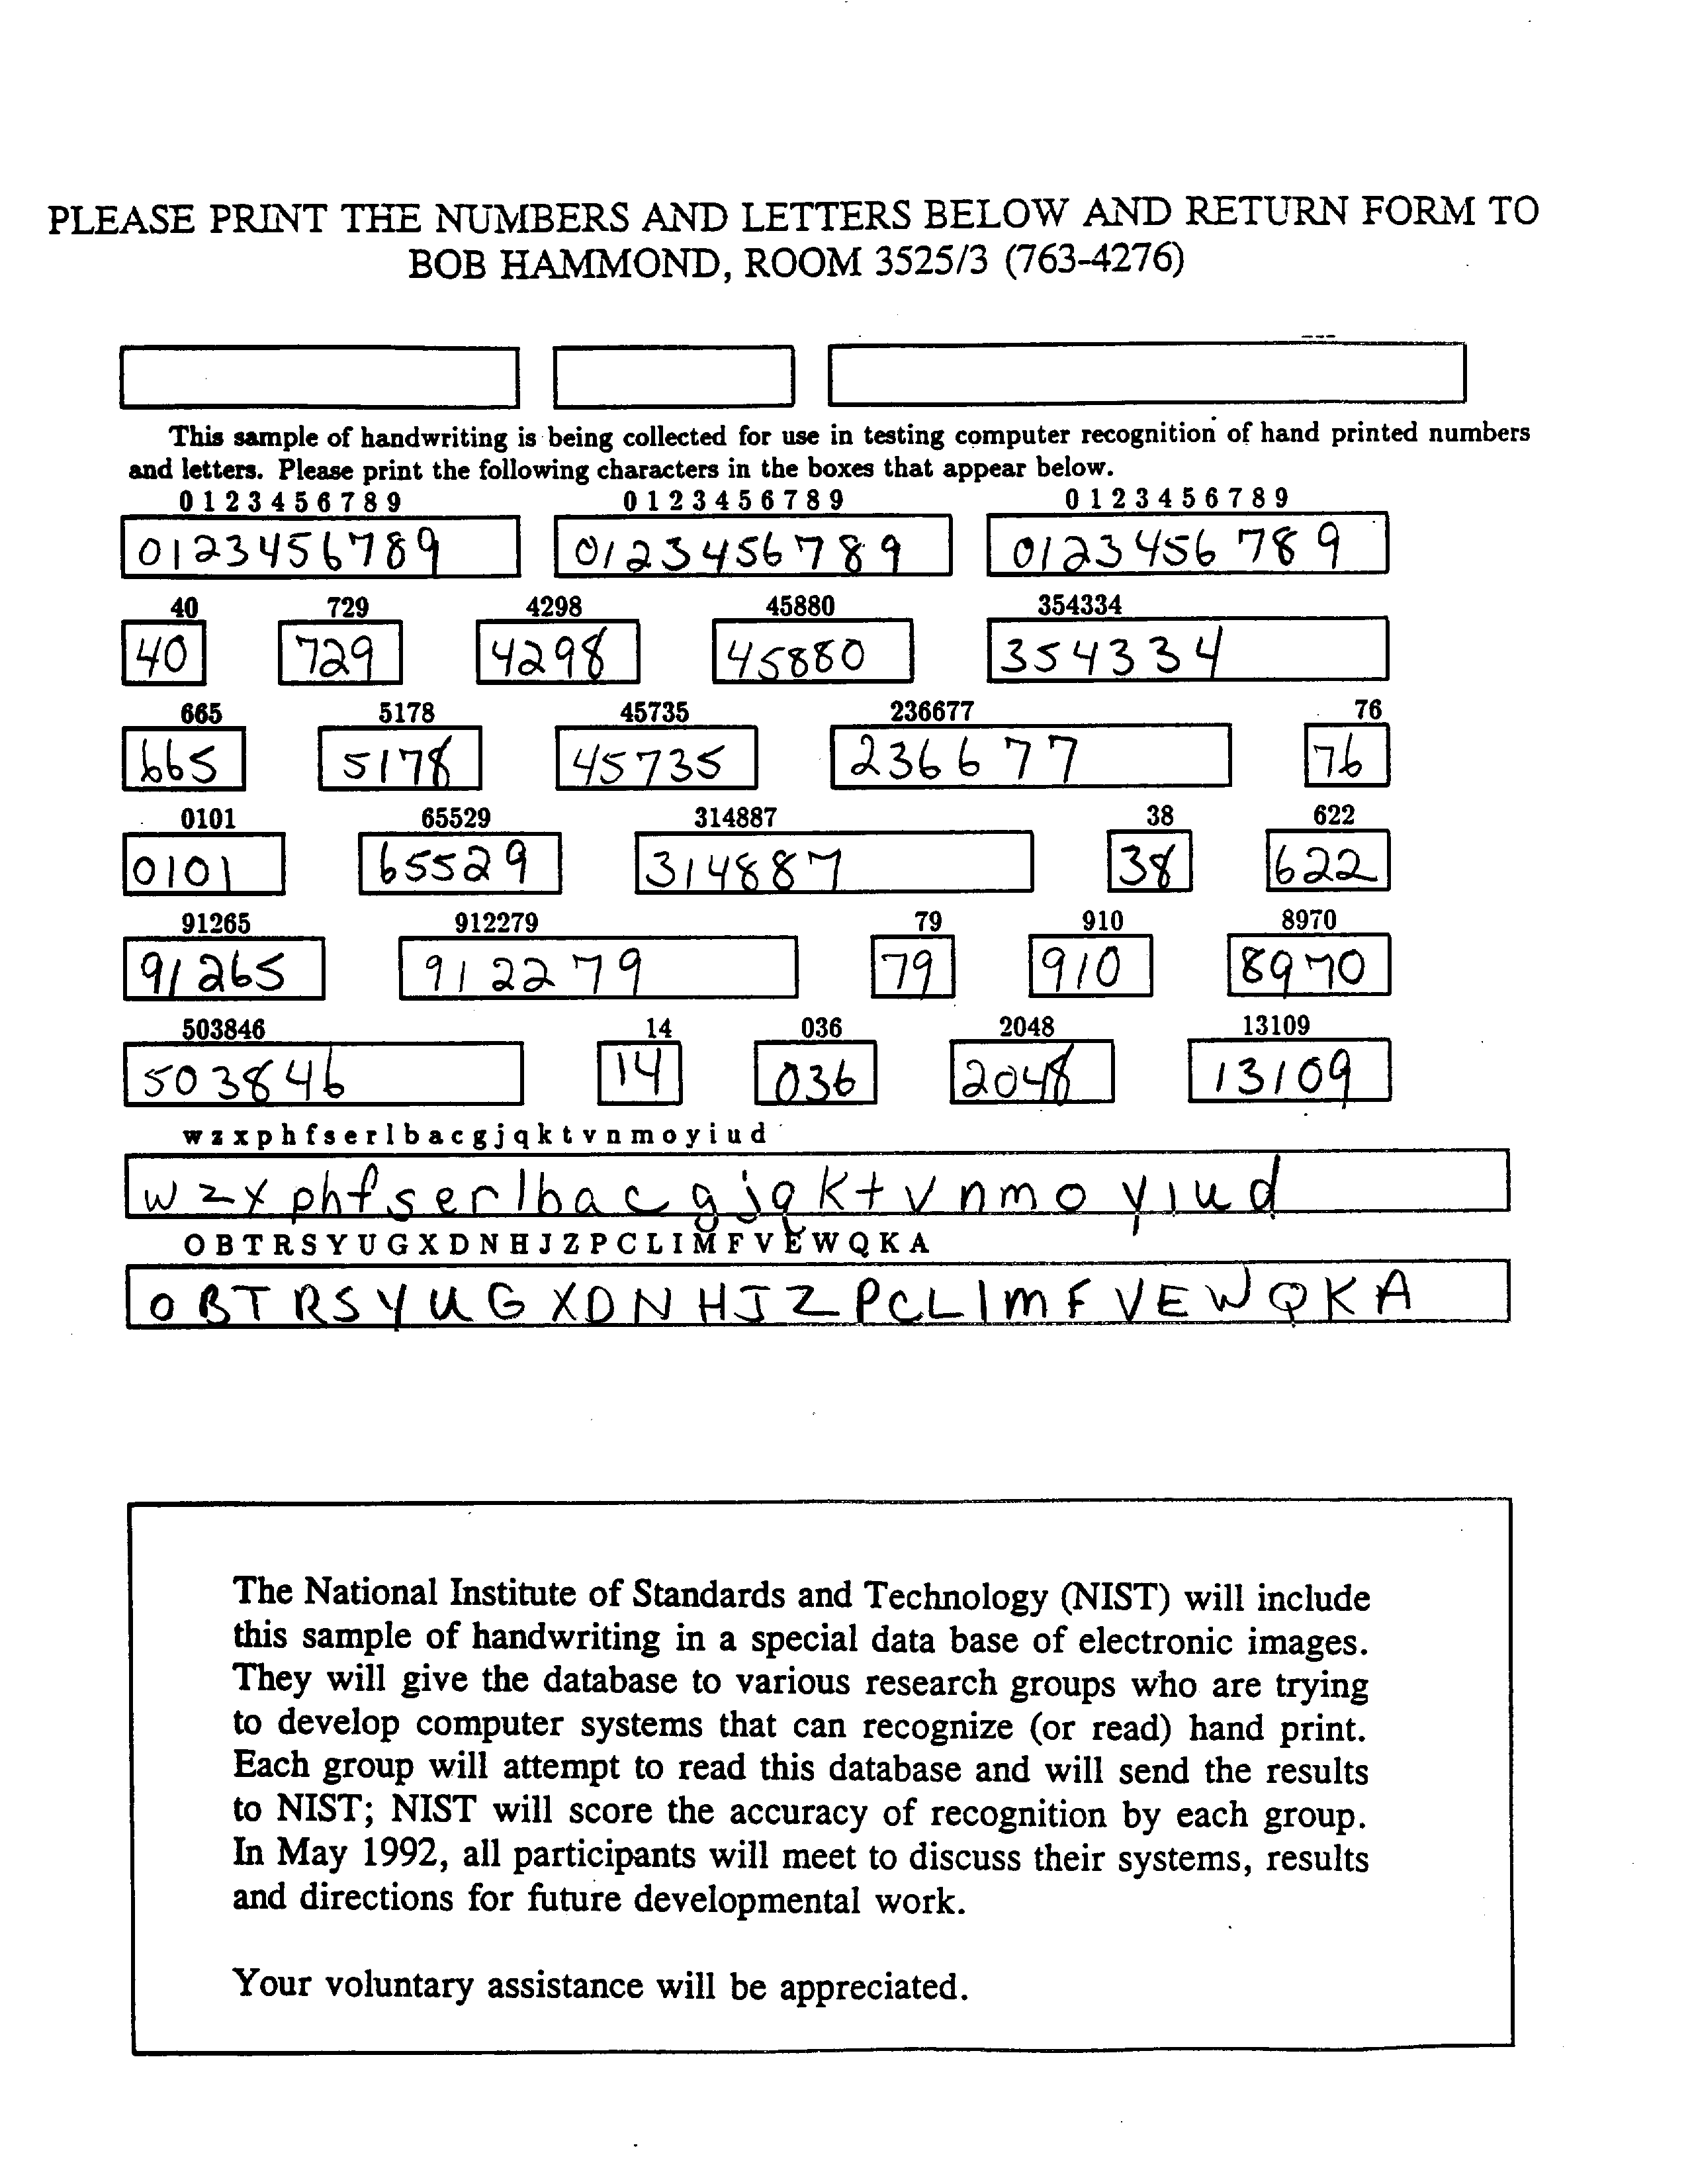 PLEASE PRINT THE NUMBERS AND LETTERS BELOW AND RETURN FORM TO
BOB HAMMOND, ROOM 3525/3 (763-4276)
This sample of handwriting is being collected for use in testing computer recognition of hand printed numbers
and letters. Please print the following characters in the boxes that appear below.
0 1 2 3 4 5 6 7 8 9 0 1 2 3 4 5 6 7 8 9 0 1 2 3 4 5 6 7 8 9
0123456789 0123456789 0123456789
40 729 4298 45880 354334
40 729 4298 45880 354334
665 5178 45735 236677 76
665 5178 45735 236677 76
0101 65529 314887 38 622
0101 65529 314887 38 622
91265 912279 79 910 8970
91265 912279 79 910 8970
503846 14 036 2048 13109
503846 14 036 2048 13109
w z x p h f s e r l b a c g j q k t v n m o y i u d
w z x p h f s e r l b a c g j q k t v n m o y i u d
O B T R S Y U G X D N H J Z P C L I M F V E W Q K A
O B T R S Y U G X D N H J Z P C L I M F V E W Q K A
The National Institute of Standards and Technology (NIST) will include
this sample of handwriting in a special data base of electronic images.
They will give the database to various research groups who are trying
to develop computer systems that can recognize (or read) hand print.
Each group will attempt to read this database and will send the results
to NIST; NIST will score the accuracy of recognition by each group.
In May 1992, all participants will meet to discuss their systems, results
and directions for future developmental work.
Your voluntary assistance will be appreciated.